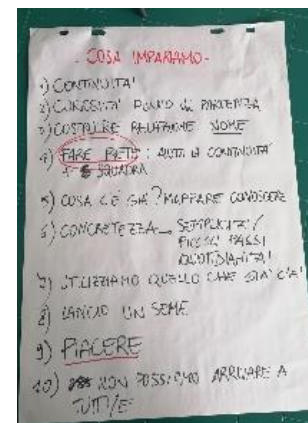 - COSA IMPARIAMO -
1) CONTINUITA'
2) CURIOSITA' PUNTO di PARTENZA
3) COSTRUIRE RELAZIONE NOME
4) FARE RETE: AIUTI la CONTINUITA'
SQUADRA
5) COSA C'È GIA'? MAPPARE CONOSCERE
6) CONCRETEZZA → SEMPLICITA'/
PICCOLI PASSI
QUOTIDIANITA'
7) UTILIZZIAMO QUELLO CHE GIA' C'È
8) LANCIO UN SEME
9) PIACERE
10) NON POSSIAMO ARRIVARE A
TUTTI/E